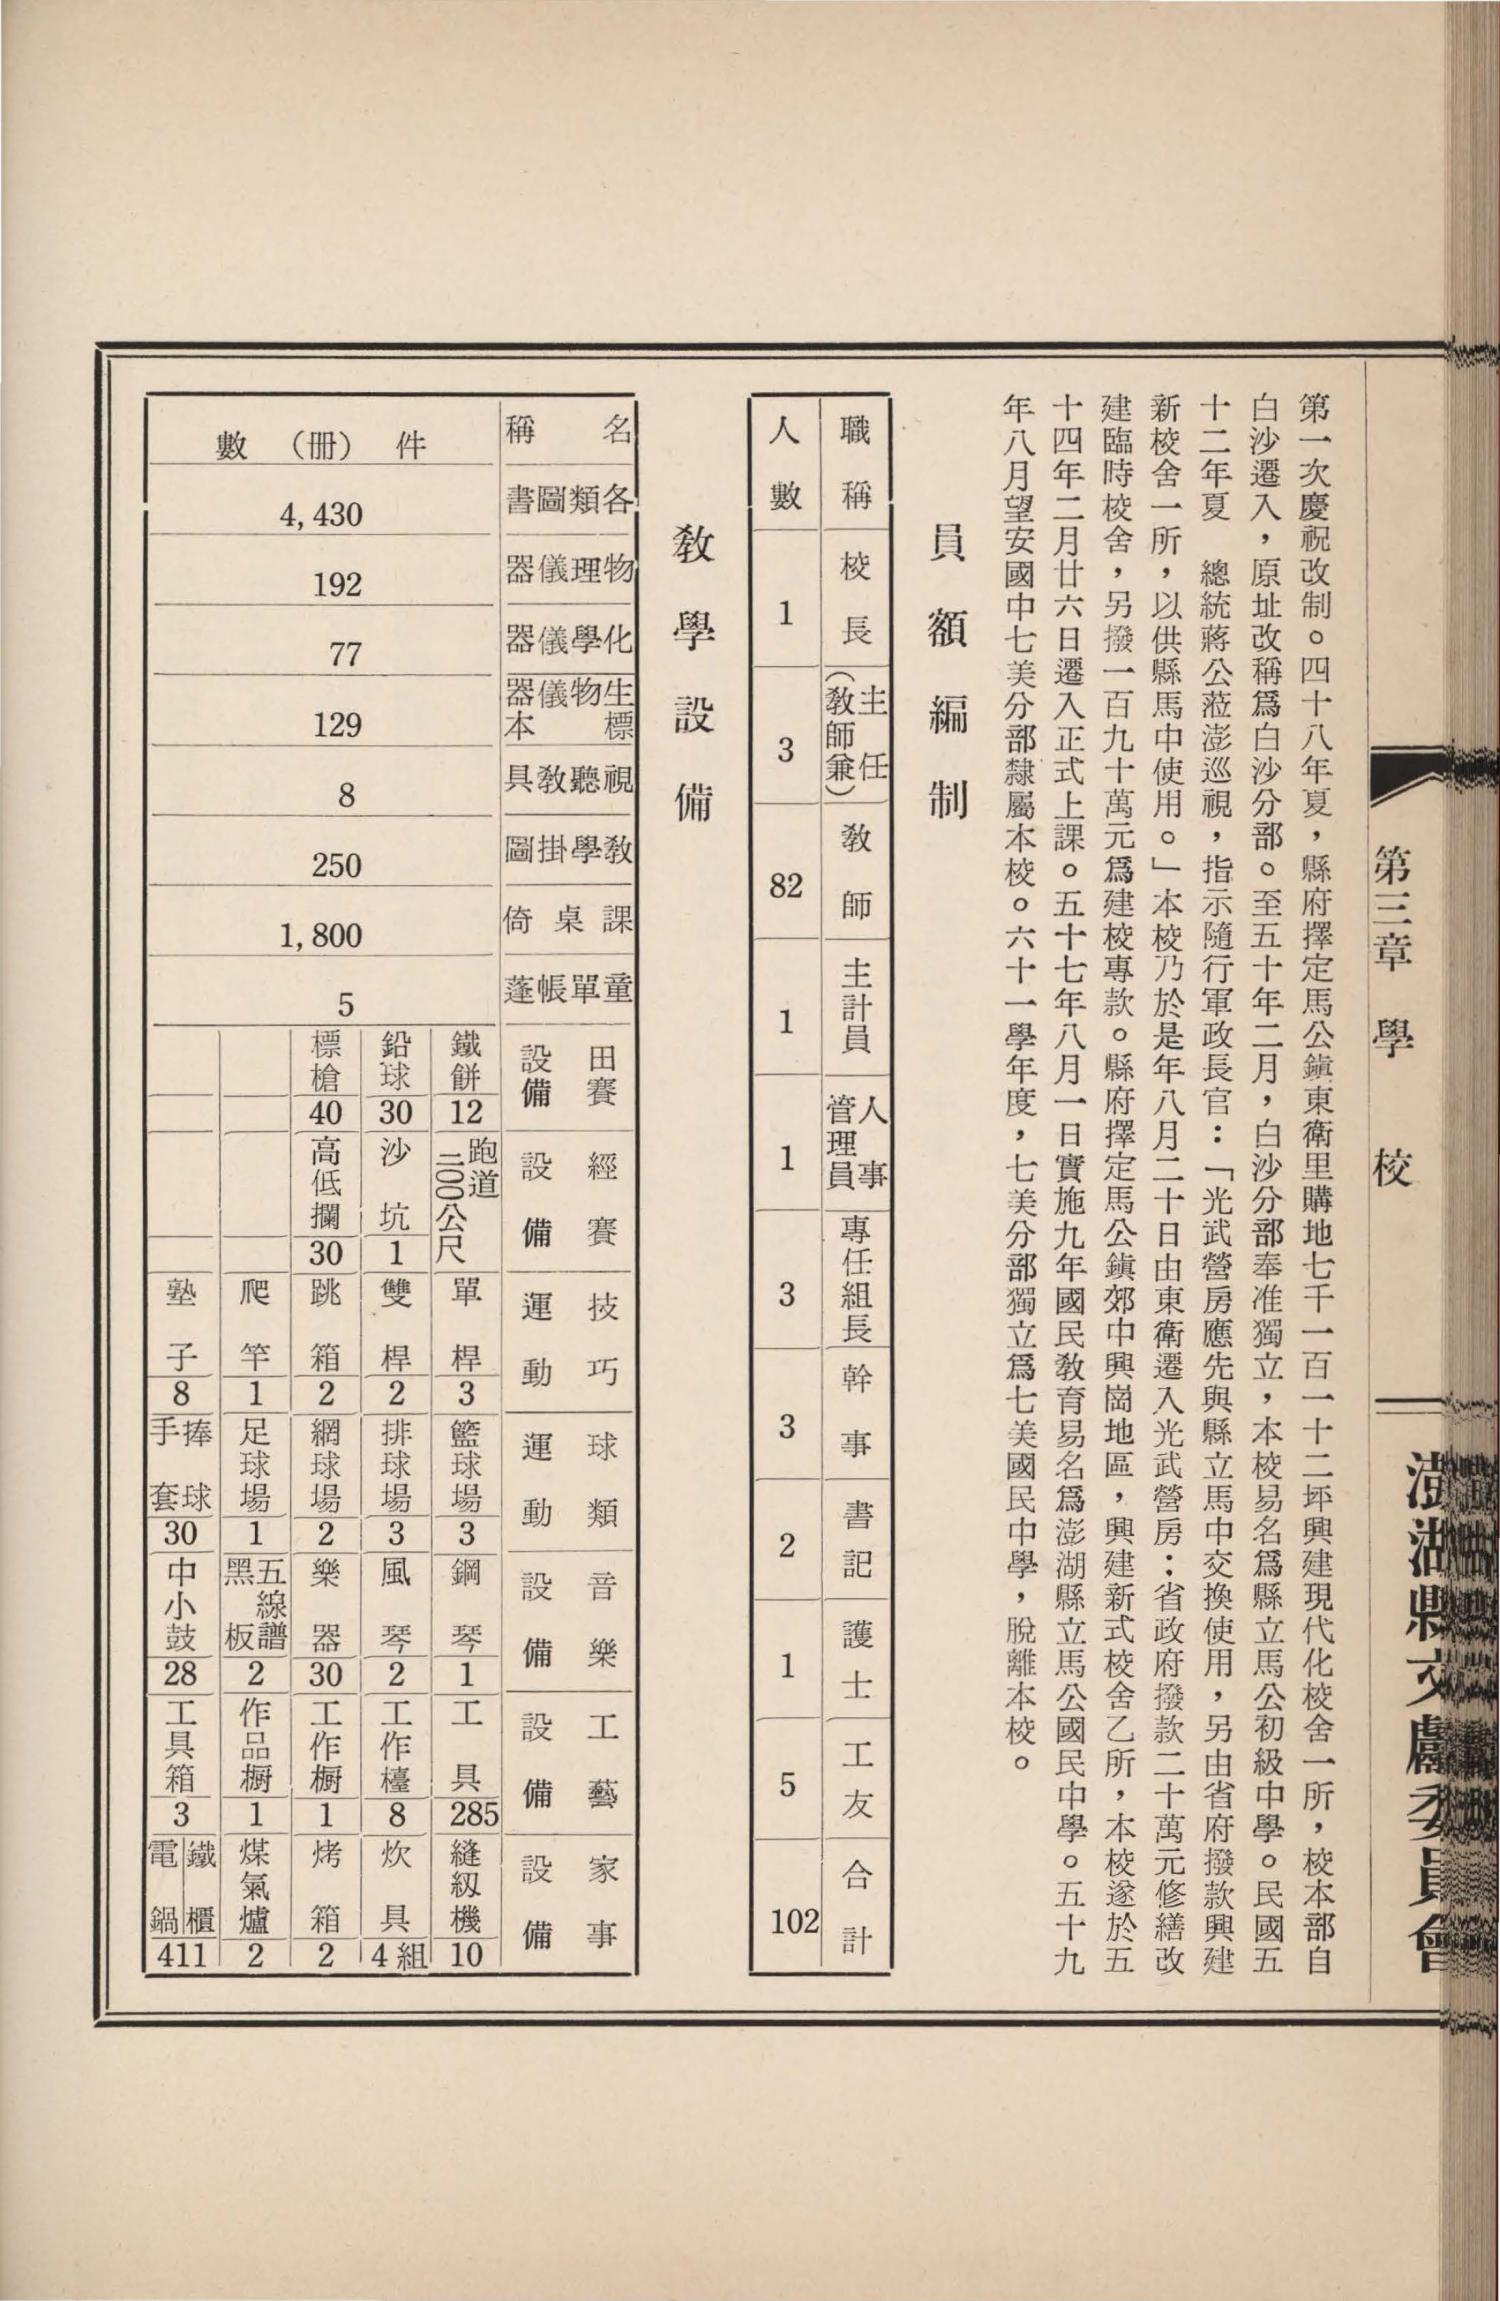 第三章　學　校
澎湖縣文獻委員會
第一次慶祝改制。四十八年夏，縣府擇定馬公鎮東衛里購地七千一百一十二坪興建現代化校舍一所，校本部自
白沙遷入，原址改稱爲白沙分部。至五十年二月，白沙分部奉准獨立，本校易名爲縣立馬公初級中學。民國五
十二年夏　總統蔣公蒞澎巡視，指示隨行軍政長官：「光武營房應先與縣立馬中交換使用，另由省府撥款興建
新校舍一所，以供縣馬中使用。」本校乃於是年八月二十日由東衛遷入光武營房：省政府撥款二十萬元修繕改
建臨時校舍，另撥一百九十萬元爲建校專款。縣府擇定馬公鎮郊中興崗地區，興建新式校舍乙所，本校遂於五
十四年二月廿六日遷入正式上課。五十七年八月一日實施九年國民教育易名爲澎湖縣立馬公國民中學。五十九
年八月望安國中七美分部隸屬本校。六十一學年度，七美分部獨立爲七美國民中學，脫離本校。
員額編制
職稱　校長　主任（教師兼）　教師　主計員　人事管理員　專任組長　幹事　書記　護士　工友　合計
人數　1　3　82　1　1　3　3　2　1　5　102
教學設備
名稱　件（冊）數
各類圖書　4,430
物理儀器　192
化學儀器　77
生物儀器標本　129
視聽教具　8
教學掛圖　250
課桌倚　1,800
童單帳蓬　5
田賽設備　鐵餅　12　鉛球　30　標槍　40
經賽設備　跑道二〇〇公尺　沙坑　1　高低攔　30
技巧運動　單桿　3　雙桿　2　跳箱　2　爬竿　1　墊子　8
球類運動　籃球場　3　排球場　3　網球場　2　足球場　1　捧球手套　30
音樂設備　鋼琴　1　風琴　2　樂器　30　五線譜黑板　2　中小鼓　28
工藝設備　工具　285　工作檯　8　工作櫥　1　作品櫥　1　工具箱　3
家事設備　縫紉機　10　炊具　4組　烤箱　2　煤氣爐　2　鐵櫃　電鍋　411